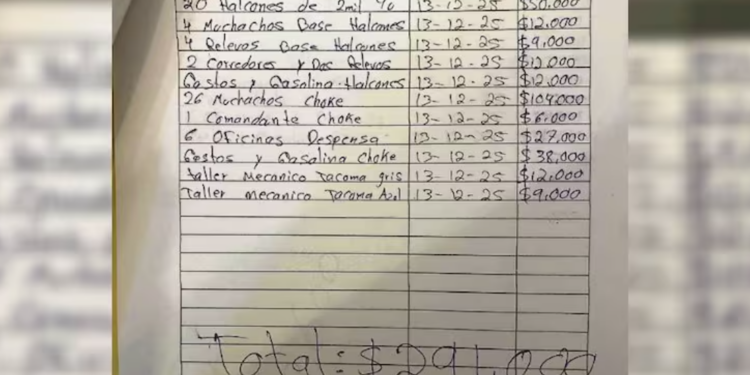 20 Halcones de 2mil 13-12-25 $50,000
4 Muchachos Base Halcones 13-12-25 $12,000
4 Relevos Base Halcones 13-12-25 $9,000
2 Corredores y Dos Relevos 13-12-25 $12,000
Gastos y Gasolina Halcones 13-12-25 $12,000
26 Muchachos Choke 13-12-25 $104,000
1 Comandante Choke 13-12-25 $6,000
6 Oficinas Despensa 13-12-25 $27,000
Gastos y Gasolina Choke 13-12-25 $38,000
Taller Mecanico Tacoma gris 13-12-25 $12,000
Taller mecanico Tacoma Azul 13-12-25 $9,000
Total: $291,000